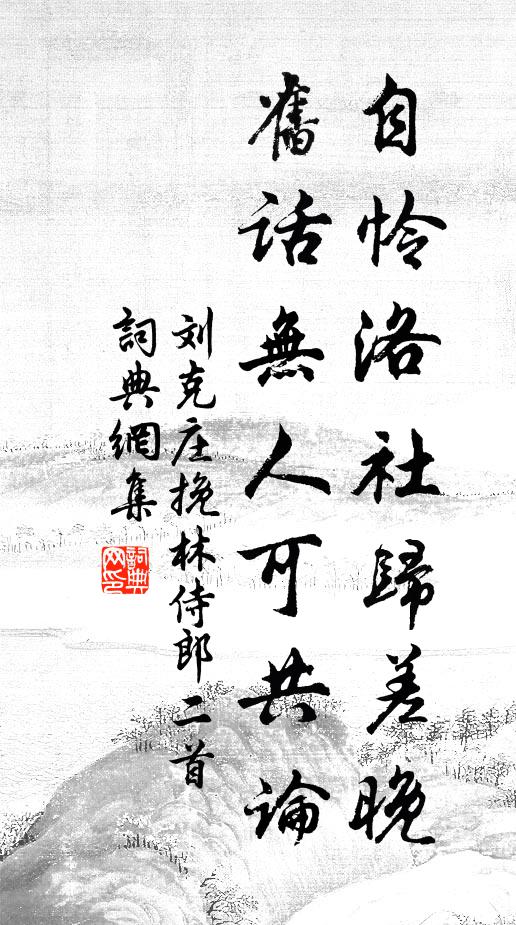 自怜洛社歸差晚
舊話無人可共論
刘克庄挽林侍郎二首
詞典網集
詞典
网印